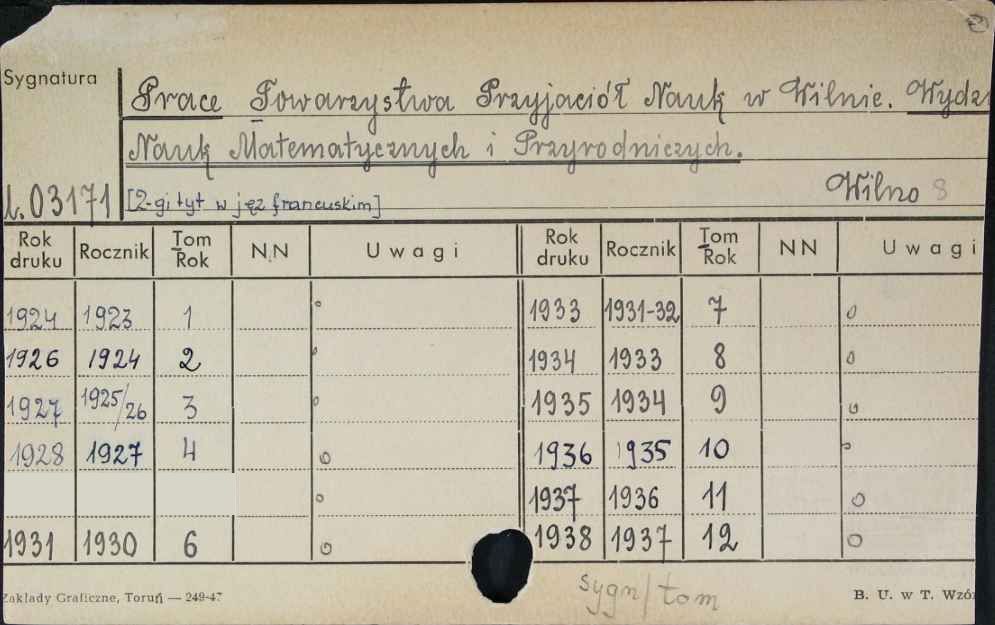 Sygnatura
Prace Towarzystwa Przyjaciół Nauk w Wilnie. Wydz
Nauk Matematycznych i Przyrodniczych.
Wilno 8
03171 [2-gi tyt w jęz francuskim]
Rok druku Rocznik Tom Rok NN Uwagi Rok druku Rocznik Tom Rok NN Uwagi
1924 1923 1 o 1933 1931-32 7 o
1926 1924 2 o 1934 1933 8 o
1927 1925/26 3 o 1935 1934 9 o
1928 1927 4 o 1936 1935 10 o
o 1937 1936 11 o
1931 1930 6 o 1938 1937 12 o
sygn/tom
Zakłady Graficzne, Toruń — 249-47 B. U. w T. Wzór